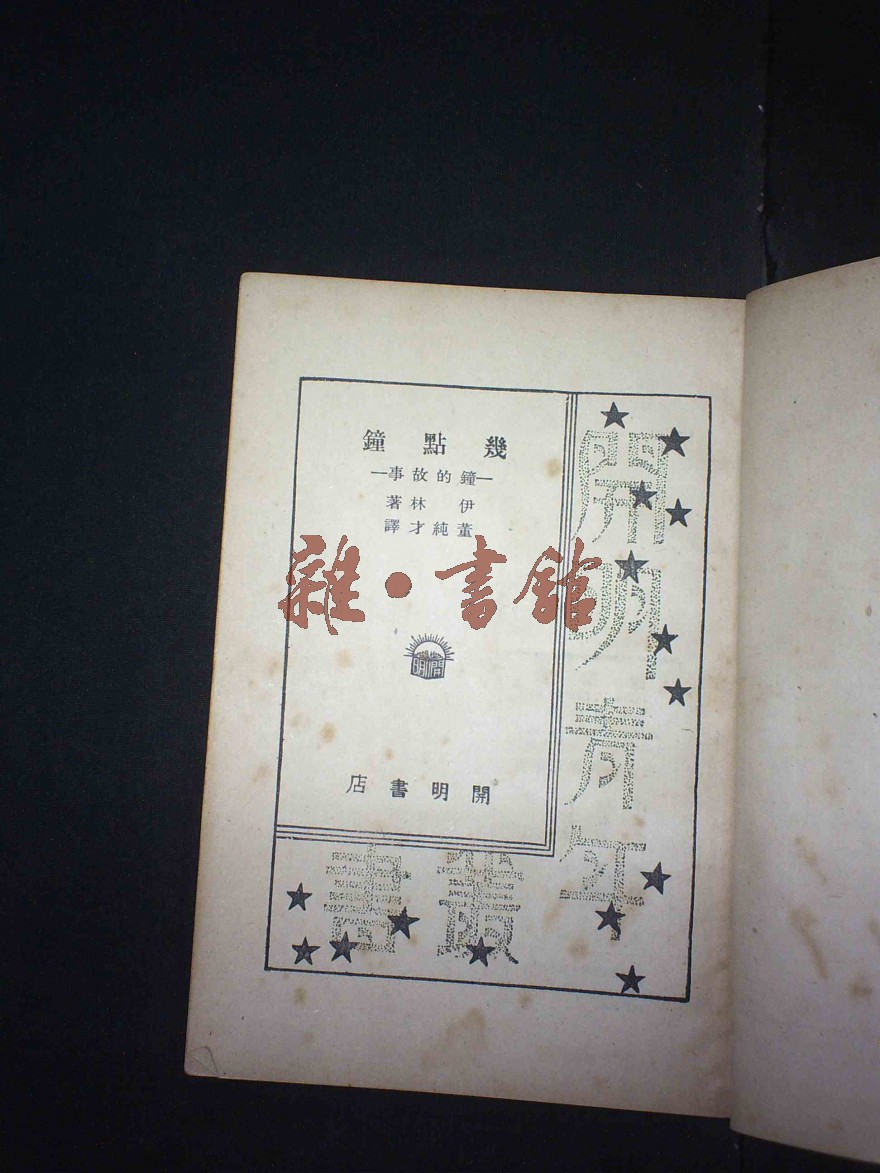 幾點鐘
—鐘的故事—
伊林著
董純才譯
雜·書館
開明
開明書店
開明青年
叢書